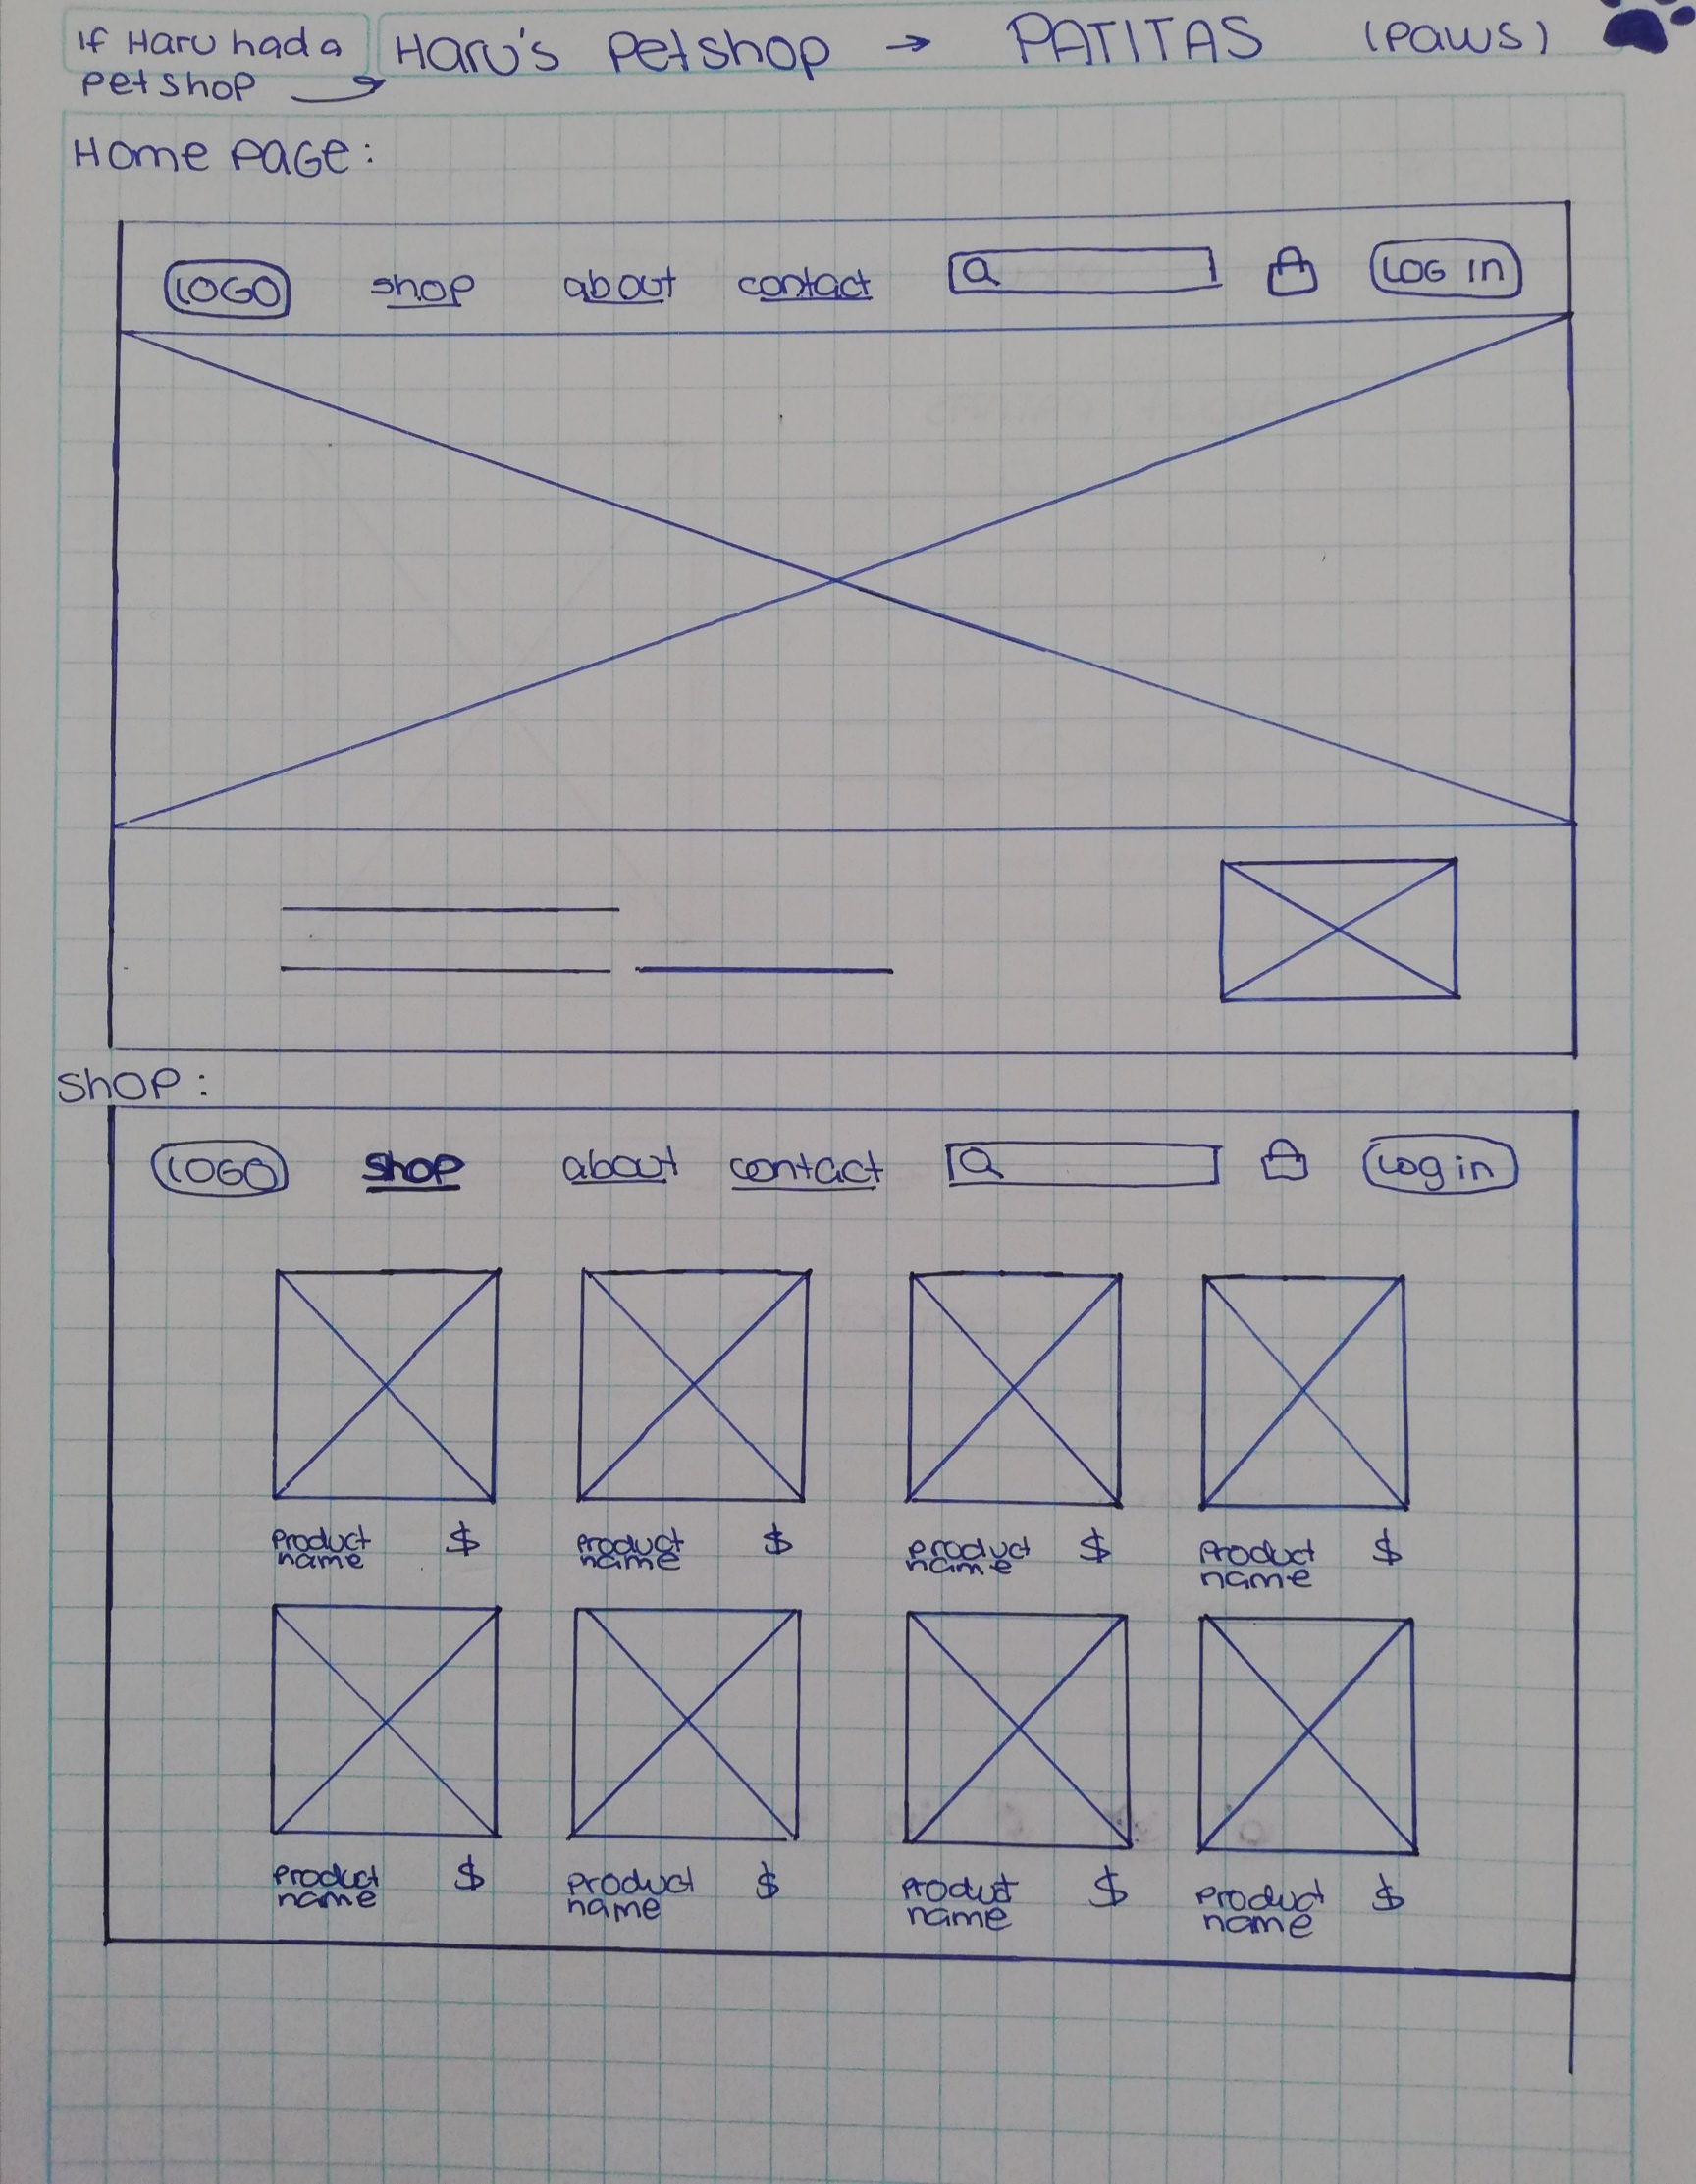 If Haru had a
petshop
Haru's Petshop → PATITAS (paws)
Home Page:
LOGO shop about contact LOG in
Shop:
LOGO shop about contact Log in
Product $ Product $ Product $ Product $
name name name name
Product $ Product $ Product $ Product $
name name name name